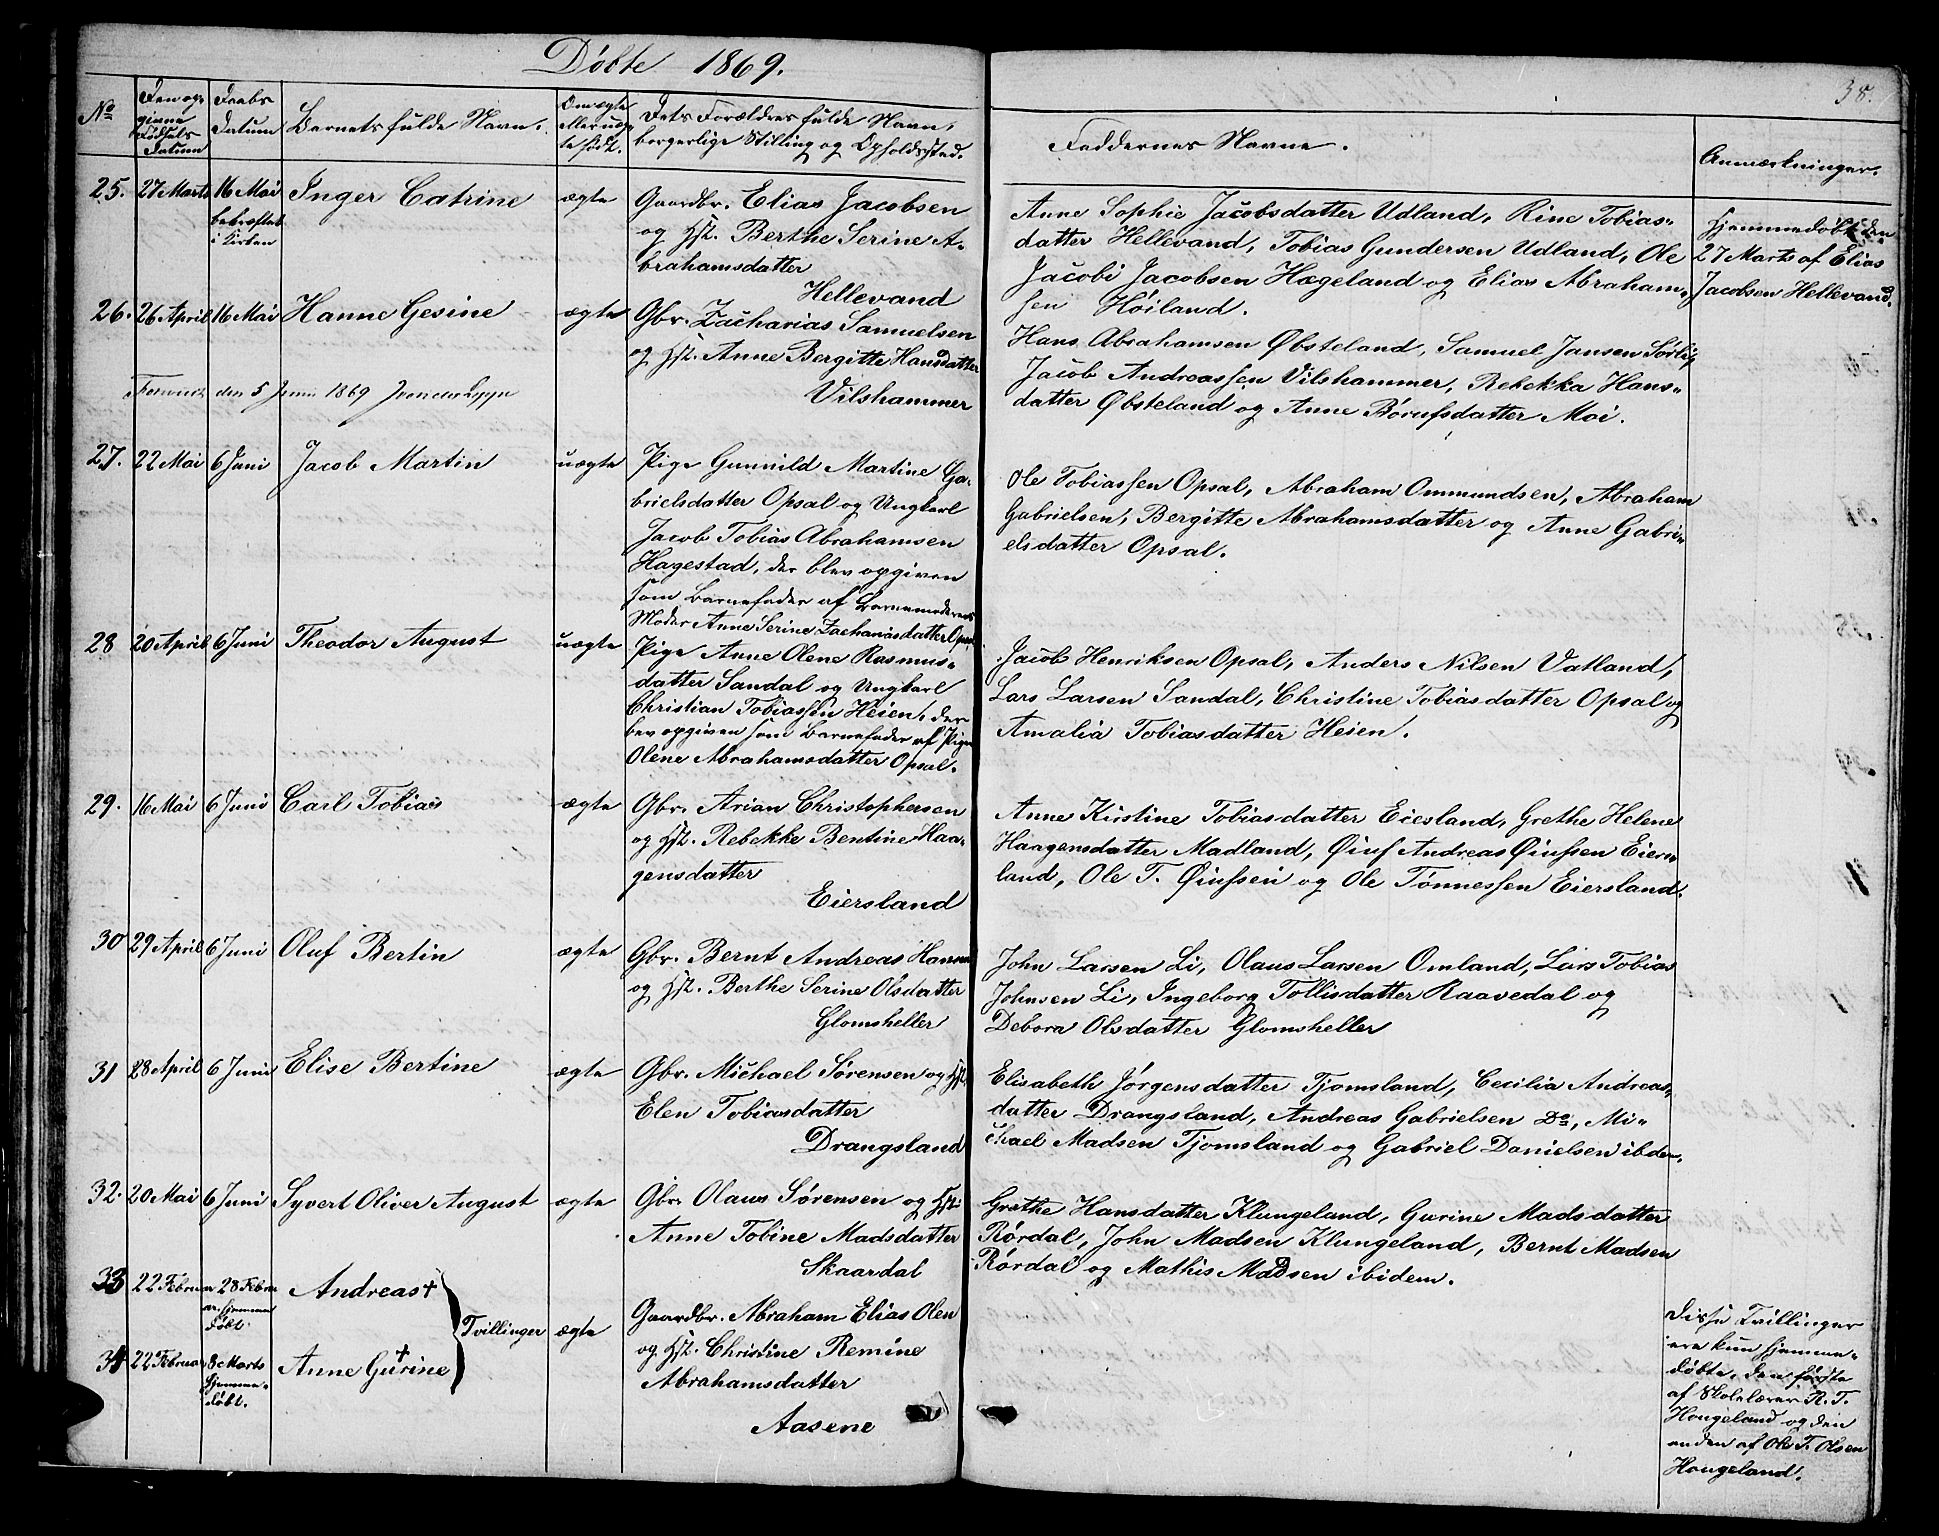 Döbte 1869.
38.
No
Den op-
givne
Födsels
Datum
Daabs
Datum
Barnets fulde Navn.
Om ægte
eller uæg-
te født.
Dets Forældres fulde Navn,
borgerlige Stilling og Opholdssted.
Faddernes Navne.
Anmærkninger.
25. 27 Marts 16 Mai Inger Catrine ægte
bekræftet
i Kirken
Gaardbr. Elias Jacobsen
og Hst. Berthe Serine A-
brahamsdatter
Hellevand
Anne Sophie Jacobsdatter Udland, Rine Tobias-
datter Hellevand, Tobias Gundersen Udland, Ole
Jacobi Jacobsen Hægeland og Elias Abraham-
sen Höiland.
Hjemmedøbt den
27 Marts af Elias
Jacobsen Hellevand.
26. 26 April 16 Mai Hanne Gesine ægte
Gbr. Zacharias Samuelsen
og Hst. Anne Bergitte Hansdatter
Vilshammer
Hans Abrahamsen Øbsteland, Samuel Jansen Sørli,
Jacob Andreassen Vilshammer, Rebekka Hans-
datter Øbsteland og Anne Børufsdatter Moi.
den 5 Juni 1869
27. 22 Mai 6 Juni Jacob Martin uægte
Pige Gunnild Martine Ga-
brielsdatter Opsal og Ungkarl
Jacob Tobias Abrahamsen
Hagestad, der blev opgiven
som Barnefader af Barnemoderens
Moder Anne Serine Zachariasdatter Opsal
Ole Tobiassen Opsal, Abraham Ommundsen, Abraham
Gabrielsen, Bergitte Abrahamsdatter og Anne Gabri-
elsdatter Opsal.
28 20 April 6 Juni Theodor August uægte
Pige Anne Olene Rasmus-
datter Sandal og Ungkarl
Christian Tobiassen Heien, der
blev opgiven som Barnefader af Pige
Olene Abrahamsdatter Opsal.
Jacob Henriksen Opsal, Anders Nilsen Vatland,
Lars Larsen Sandal, Christine Tobiasdatter Opsal og
Amalia Tobiasdatter Heien.
29. 16 Mai 6 Juni Carl Tobias ægte
Gbr. Arian Christophersen
og Hst. Rebekke Bentine Haa-
gensdatter
Eiersland
Anne Kirstine Tobiasdatter Eiesland, Grethe Helene
Haagensdatter Madland, Øiuf Andreas Øiufsen Eiers-
land, Ole T. Øiufsen og Ole Tønnessen Eiersland.
30 29 April 6 Juni Oluf Bertin ægte
Gbr. Bernt Andreas Hansen
og Hst. Berthe Serine Olsdatter
Glomsheller
John Larsen Li, Olaus Larsen Omland, Lars Tobias
Johnsen Li, Ingeborg Tollisdatter Raavedal og
Debora Olsdatter Glomsheller
31 28 April 6 Juni Elise Bertine ægte
Gbr. Michael Sørensen og Hst.
Elen Tobiasdatter
Drangsland
Elisabeth Jørgensdatter Tjomsland, Cecilia Andreas-
datter Drangsland, Andreas Gabrielsen Do, Mi-
chael Madsen Tjomsland og Gabriel Danielsen ibdem.
32. 20 Mai 6 Juni Syvert Oliver August ægte
Gbr. Olaus Sørensen og Hst.
Anne Tobine Madsdatter
Skaardal
Grethe Hansdatter Klungeland, Gurine Madsdatter
Rørdal, John Madsen Klungeland, Bernt Madsen
Rørdal og Mathis Madsen ibidem.
33 22 Februar 28 Febru-
ar hjemme
døbt.
Andreas +
Tvillinger ægte
34 22 Februar 8 Marts
hjemme-
døbt.
Anne Gurine +
Gaardbr. Abraham Elias Olsen
og Hst. Christine Remine
Abrahamsdatter
Aasene
Disse Tvillinger
ere kun hjemme-
døbte, den første
af Skolelærer R. T.
Hougeland og den
anden af Ole T. Olsen
Hougeland.